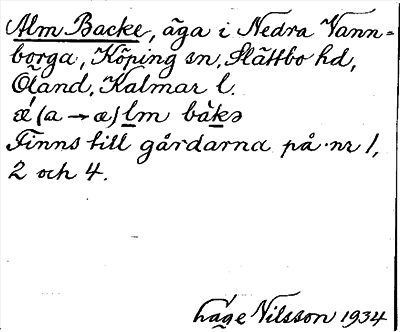 Alm Backe, äga i Nedra Vann-
borga, Köping sn, Slättbo hd,
Öland, Kalmar l.
ǽ (a → æ) lm båkə
Finns till gårdarna på nr 1,
2 och 4.
Nilsson 1934